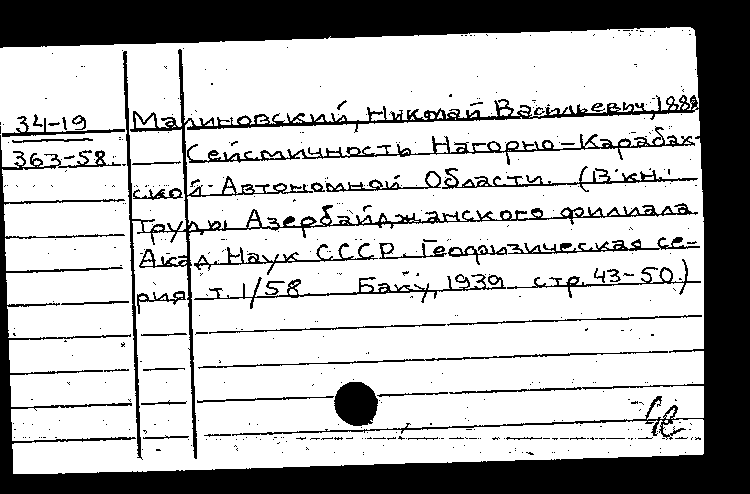 34-19 Малиновский, Николай Васильевич, 1888
363-58. Сейсмичность Нагорно-Карабах-
ской Автономной Области. (В кн.:
Труды Азербайджанского филиала
Акад. Наук СССР. Геофизическая се-
рия т. 1/58 Баку, 1939 стр. 43-50.)